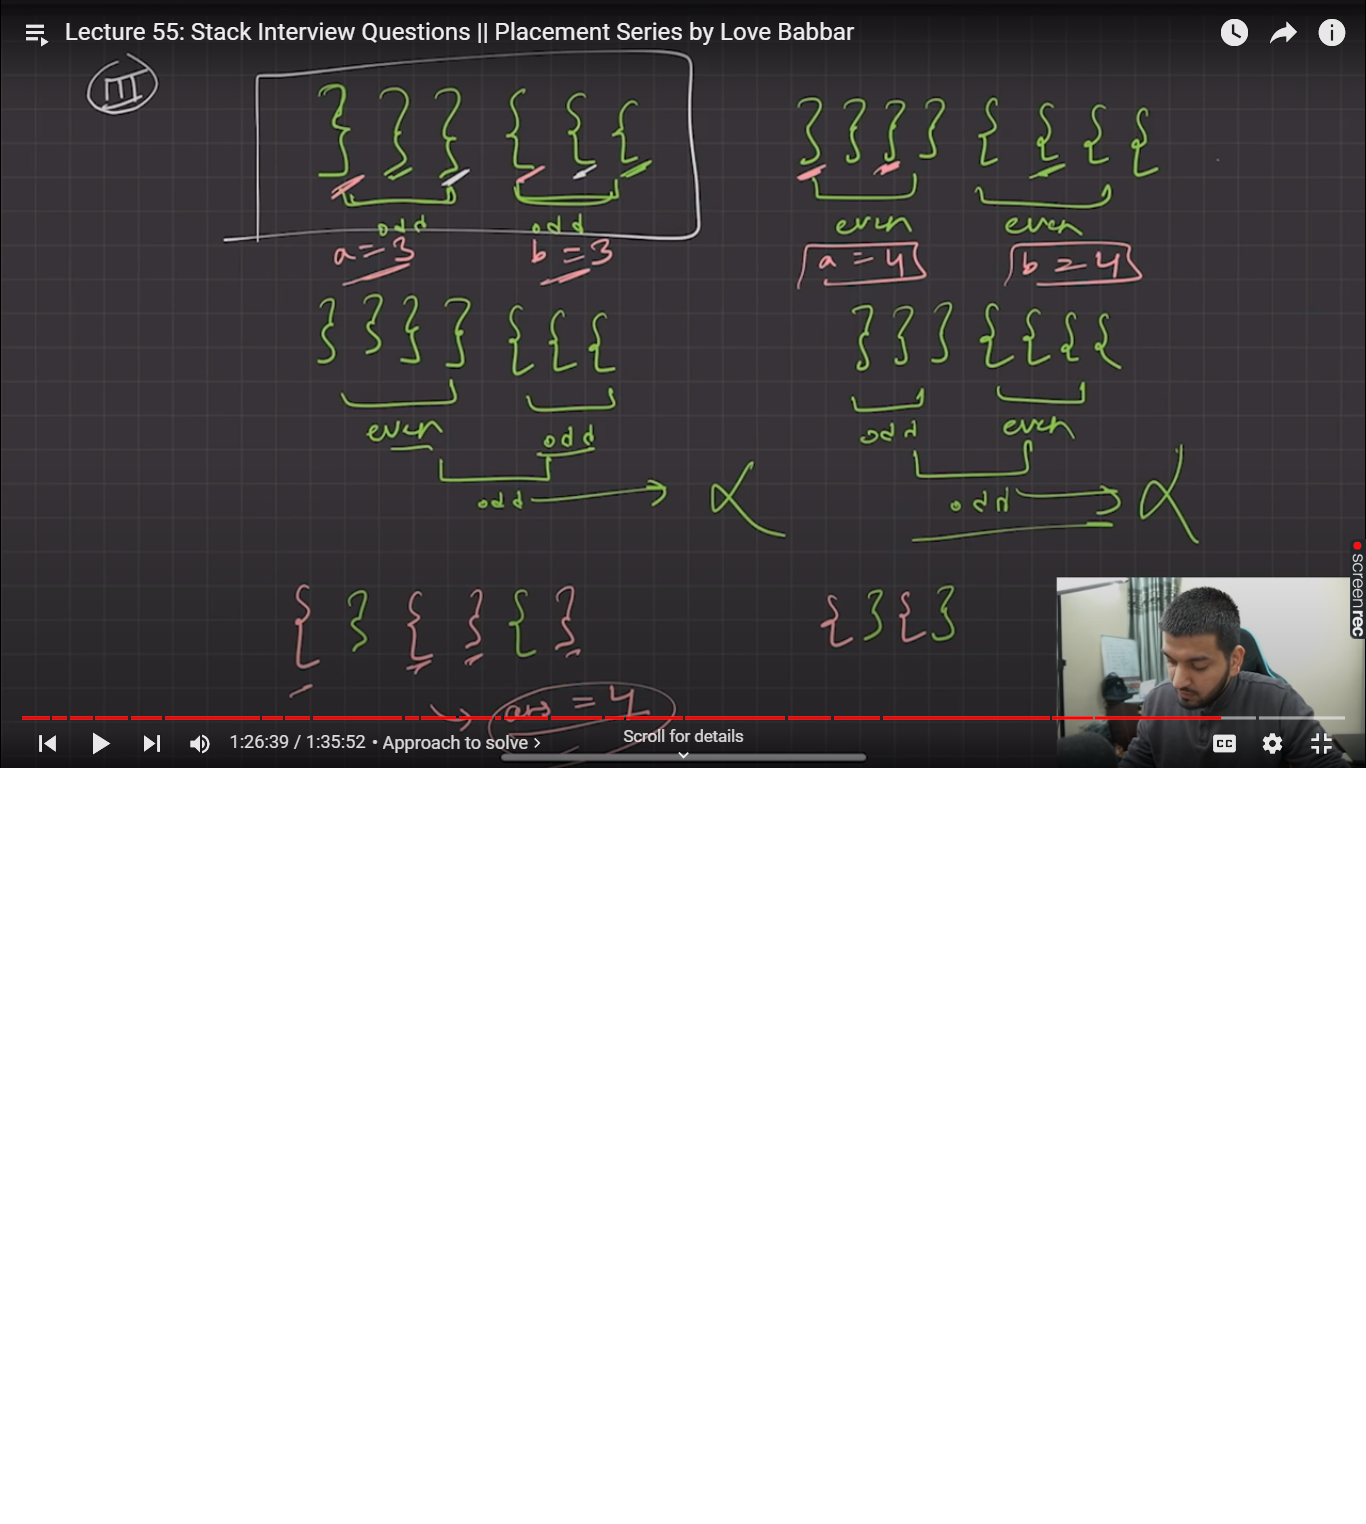 Lecture 55: Stack Interview Questions || Placement Series by Love Babbar
III
} } } { { {
odd odd
a = 3 b = 3
} } } } { { { {
even even
a = 4 b = 4
} } } } { { {
even odd
odd →
} } } { { { {
odd even
odd →
{ } { } { }
ans = 4
{ } { }
screenrec
1:26:39 / 1:35:52 • Approach to solve ›
Scroll for details
CC